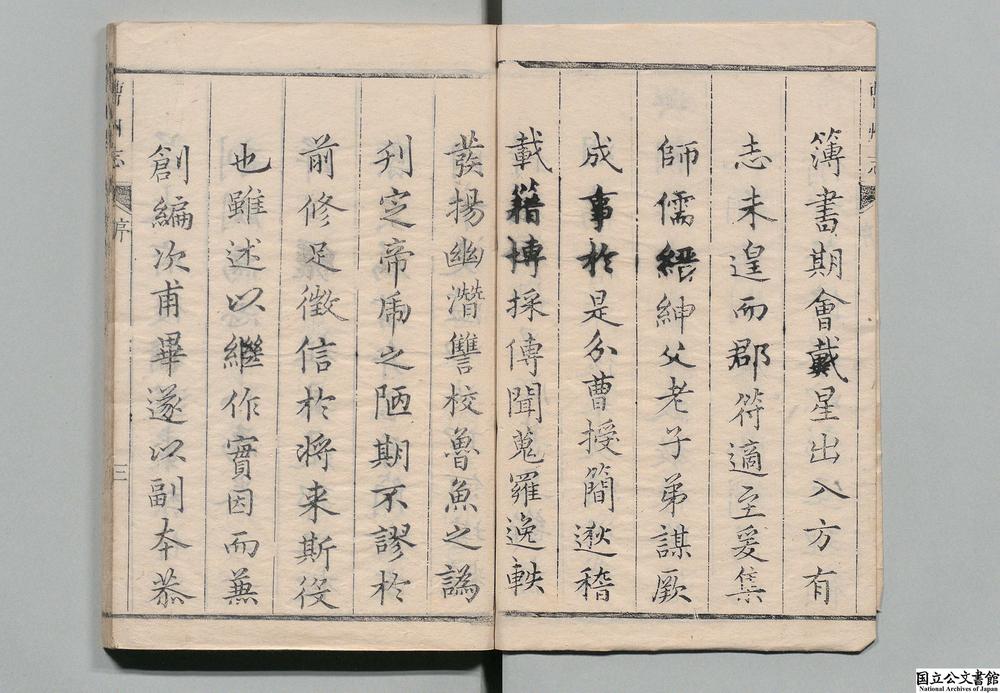 簿書期會戴星出入方有
志未遑而郡符適至爰集
師儒縉紳父老子弟謀厥
成事於是分曹授簡逖稽
載籍博採傳聞蒐羅逸軼
發揚幽潛讐校魯魚之譌
刋定帝虎之陋期不謬於
前修足徵信於将来斯役
也雖述以繼作實因而蕪
創編次甫畢遂以副本恭
曹州志
序
三
国立公文書館
National Archives of Japan